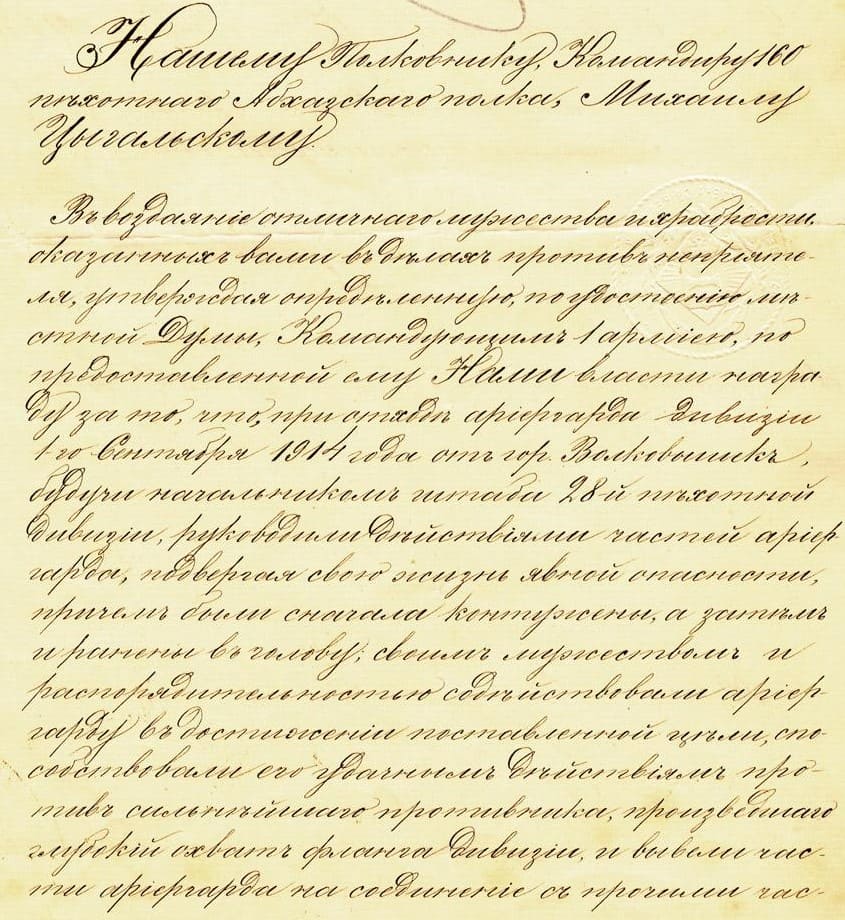 Нашему Полковнику, Командиру 160
пѣхотнаго Абхазскаго полка, Михаилу
Цыгальскому.
Въ воздаяніе отличнаго мужества и храбрости,
оказанныхъ вами въ дѣлахъ противъ непріяте-
ля, утверждая опредѣленную, по удостоенію мѣ-
стной Думы, Командующимъ 1 арміею, по
предоставленной ему Нами власти награ-
ду за то, что, при отходѣ аріергарда дивизіи
1-го Сентября 1914 года отъ гор. Волковышикъ,
будучи начальникомъ штаба 28-й пѣхотной
дивизіи, руководили дѣйствіями частей аріер-
гарда, подвергая свою жизнь явной опасности,
причемъ были сначала контужены, а затѣмъ
и ранены въ голову; своимъ мужествомъ и
распорядительностью содѣйствовали аріер-
гарду въ достиженіи поставленной цѣли, спо-
собствовали его удачнымъ дѣйствіямъ про-
тивъ сильнѣйшаго противника, произведшаго
глубокій охватъ фланга дивизіи, и вывели час-
ти аріергарда на соединеніе съ прочими час-